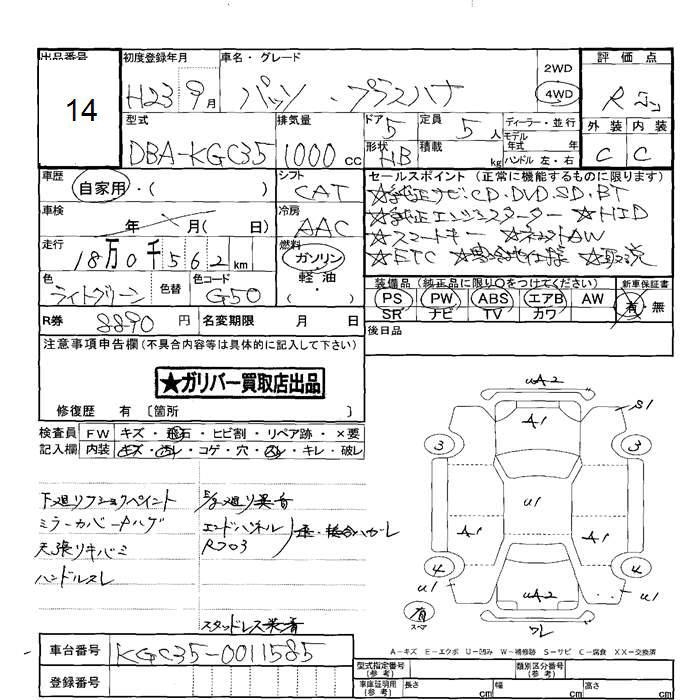 出品番号
14
初度登録年月
H23 9月
車名・グレード
パッソ ・プラスハナ
2WD
4WD
評価点
R
型式
DBA-KGC35
排気量
1000cc
ドア 5
形状 HB
定員 5人
積載 kg
ディーラー・並行
モデル年式 年
ハンドル 左・右
外装 内装
C C
車歴
自家用・( )
シフト
CAT
車検
年 月( 日)
冷房
AAC
走行
18万0千562km
燃料
ガソリン
軽油・
( )
色
ライトグリーン
色替
色コード
G50
セールスポイント(正常に機能するものに限ります)
☆純正ナビ・CD・DVD・SD・BT
☆純正エンジンスターター ☆HID
☆スマートキー ☆ AW
☆ETC ☆寒冷地仕様 ☆
装備品(純正品に限り○をつけてください)
PS PW ABS エアB AW
SR ナビ TV カワ
新車保証書
有 無
R券 8890円
名変期限 月 日
後日品
注意事項申告欄(不具合内容等は具体的に記入して下さい)
★ガリバー買取店出品
修復歴 有 〔箇所 〕
検査員記入欄
FW キズ・飛石・ヒビ割・リペア跡・×要
内装 キズ・汚レ・コゲ・穴・スレ・キレ・破レ
下廻リフショクペイント
ミラーカバー爪ハゲ
天張リキバミ
ハンドルスレ
廻り異音
エンドパネル
接合ハガレ
スタッドレス装着
UA2
A1
S1
3
3
U1
A1
A1
4
4
U1
U1
UA2
有
スペア
A-キズ E-エクボ U-凹み W-補修跡 S-サビ C-腐食 XX-交換済
車台番号
KGC35-0011585
登録番号
型式指定番号(参考)
類別区分番号(参考)
車庫証明用(参考)
長さ cm
幅 cm
高さ cm